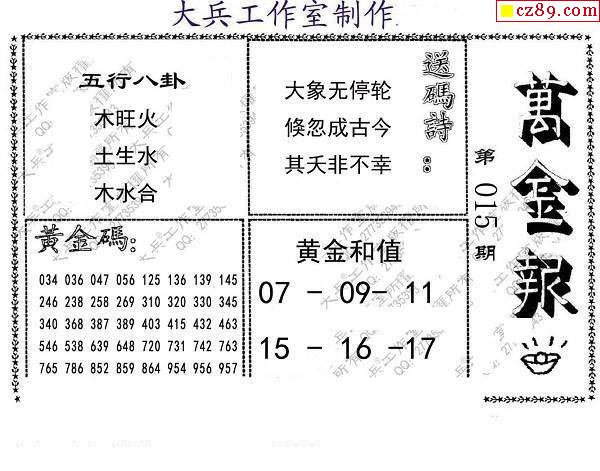 大兵工作室制作
cz89.com
五行八卦
木旺火
土生水
木水合
送碼詩:
大象无停轮
倏忽成古今
其夭非不幸
萬金報
第015期
黃金碼:
034 036 047 056 125 136 139 145
246 238 258 269 310 320 330 345
340 368 387 389 403 415 432 463
546 538 639 648 720 731 742 763
765 786 852 859 864 954 956 957
黄金和值
07 - 09- 11
15 - 16 -17